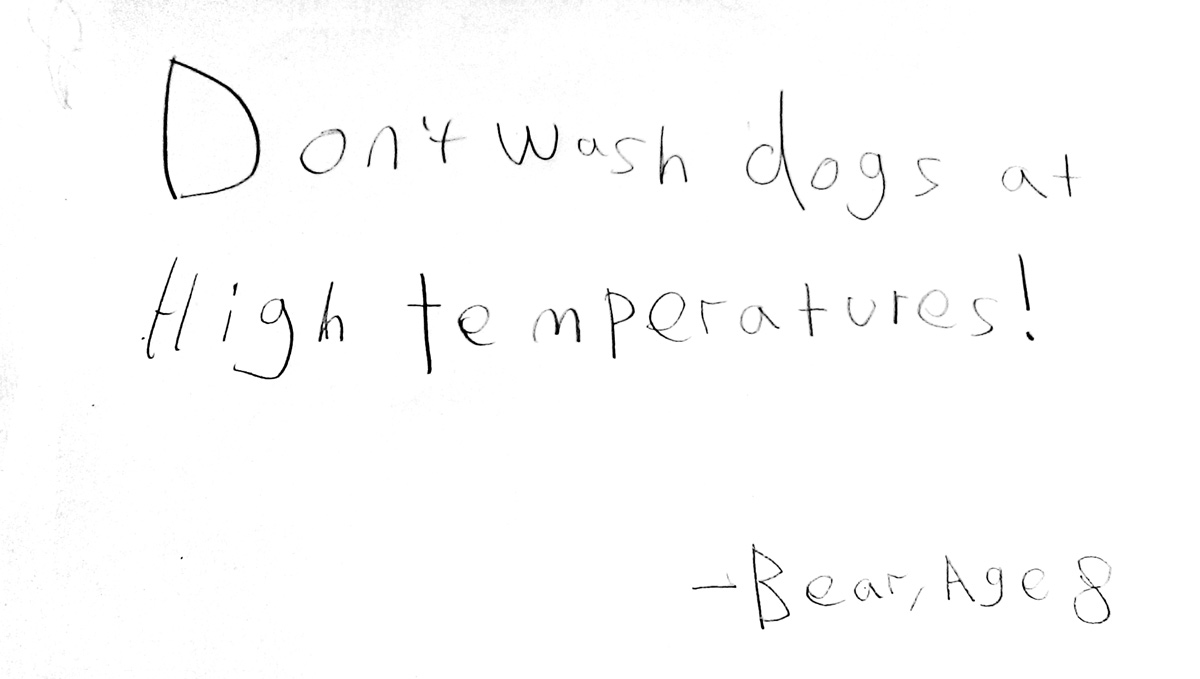 Don't wash dogs at
High temperatures!
-Bear, Age 8